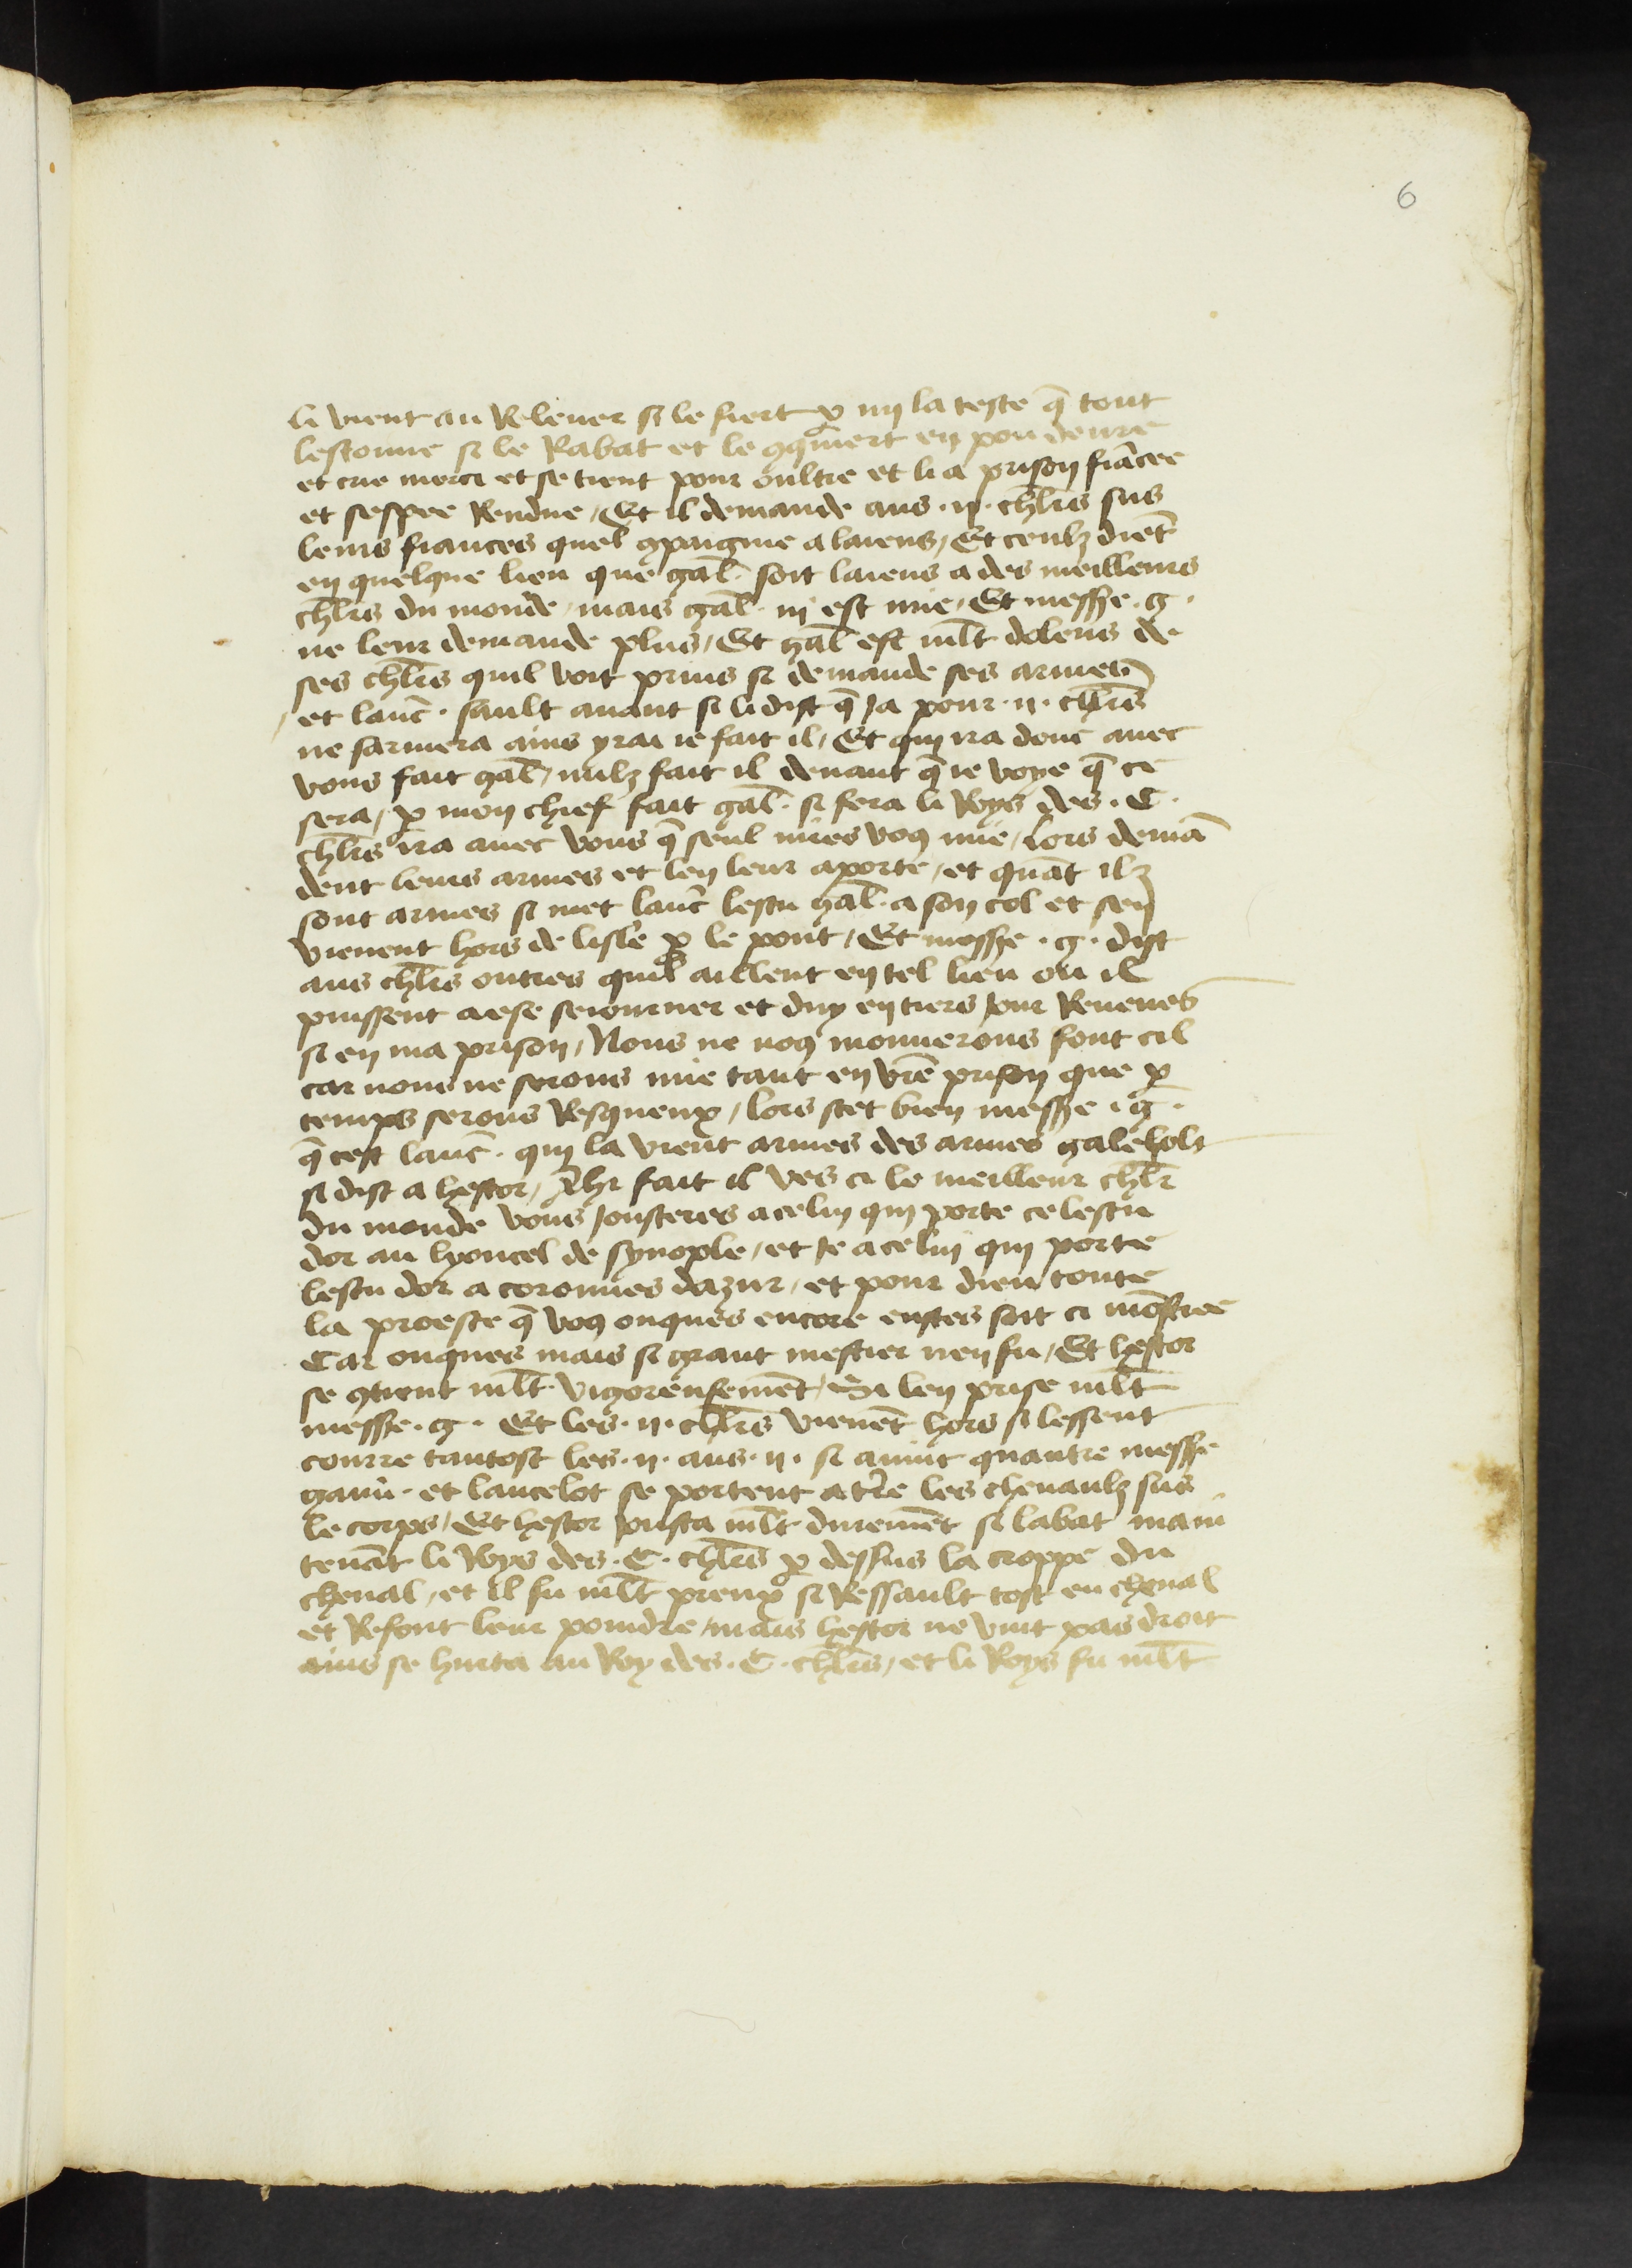 6
li vient au Relever si le fiert ꝑ mi la teste q̃ tout
lestonne si le Rabat et le ꝯquiert en pou deure
et crie merci et se tient pour oultre et li a prison fiãcee
et sespee Rendue / Et il demande aus .ij. chl̅rs sus
leurs fiances quel ꝯpaignie a laiens / Et ceulz diẽt
en quelque lieu que gal̅. soit laiens a des meilleurs
chl̅rs du monde / mais gal̅. ni est mie / Et messe .g.
ne leur demande plus / Et gal̅ est ml̅t dolens de
ses chl̅rs quil voit prins si demande ses armes
/ et lanc̅. sault auant si li dist q̃ Ja pour .ij. chl̅rs
ne sarmera ains yrai ie fait il / Et qui ira donc auec
vous fait gal̅ / nulz fait il deuant q̃ ie voye q̃ ce
sera / ꝑ mon chief fait gal̅. si fera li Roys des .C.
chl̅rs ira auec vous q̃ seul nires voꝯ mie / Lors demã
dent leurs armes et len leur aporte / et quãt ilz
sont armes si met lanc̅ lescu gal̅. a son col et sen
vienent hors de lisle ꝑ le pont / Et messe .g. dist
aus chl̅rs outres quil aillent en tel lieu ou il
puissent aese seiourner et duy en tiers Jour Reuenes
si en ma prison / Nous ne noꝯ mouuerons font cil
car nous ne serons mie tant en vr̃e prison que ꝑ
temps serons Resqueux / lors scet bien messe .g.
q̃ cest lanc̅. qui la vient armes des armes galeholt
si dist a hestor / fait il ves ci le meilleur chl̅r
du monde vous Jousteres a celui qui porte ce lescu
dor au lyoncel de synople / et Je a celui qui porte
lescu dor a coronnes dazur / et pour dieu toute
la proesce q̃ voꝯ onques encore eustes soit ci mõstree
Car onques mais si grant mestier nen fu / Et hestor
se ꝯtient ml̅t. vigoreusemẽt / Si len prise ml̅t
messe .g. Et les .ij. chl̅rs vienẽt hors si lessent
courre tantost les .ij. aus .ij. si auint quantre messe
gauu̅. et lancelot se portent a tr̃e les cheuaulz sus
le corps / Et hestor Jousta ml̅t. duremẽt si labat main
tenãt li Roys des .C. chl̅rs ꝑ dessus la croppe du
cheual / et il fu ml̅t preux si Ressault tost en cheual
et Refont leur poindre / mais hestor ne vint pas droit
ains se hurta au Roy des .C. chl̅rs / et li Roys fu ml̅t